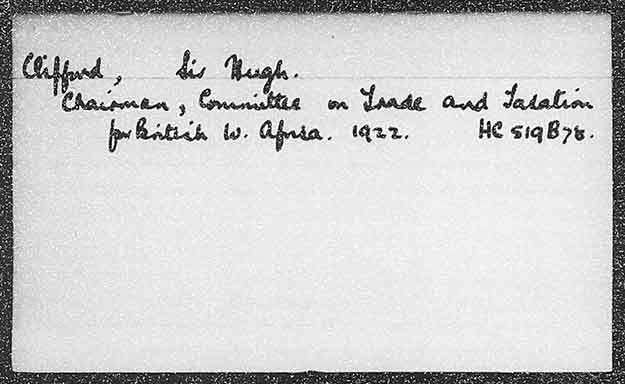 Clifford, Sir Hugh.
Chairman, Committee on Trade and Taxation
for British W. Africa. 1922. HC 519B78.